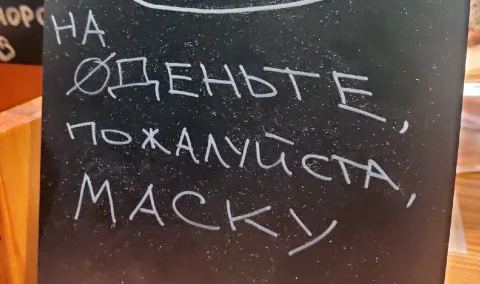 НА
ØДЕНЬТЕ,
ПОЖАЛУЙСТА,
МАСКУ